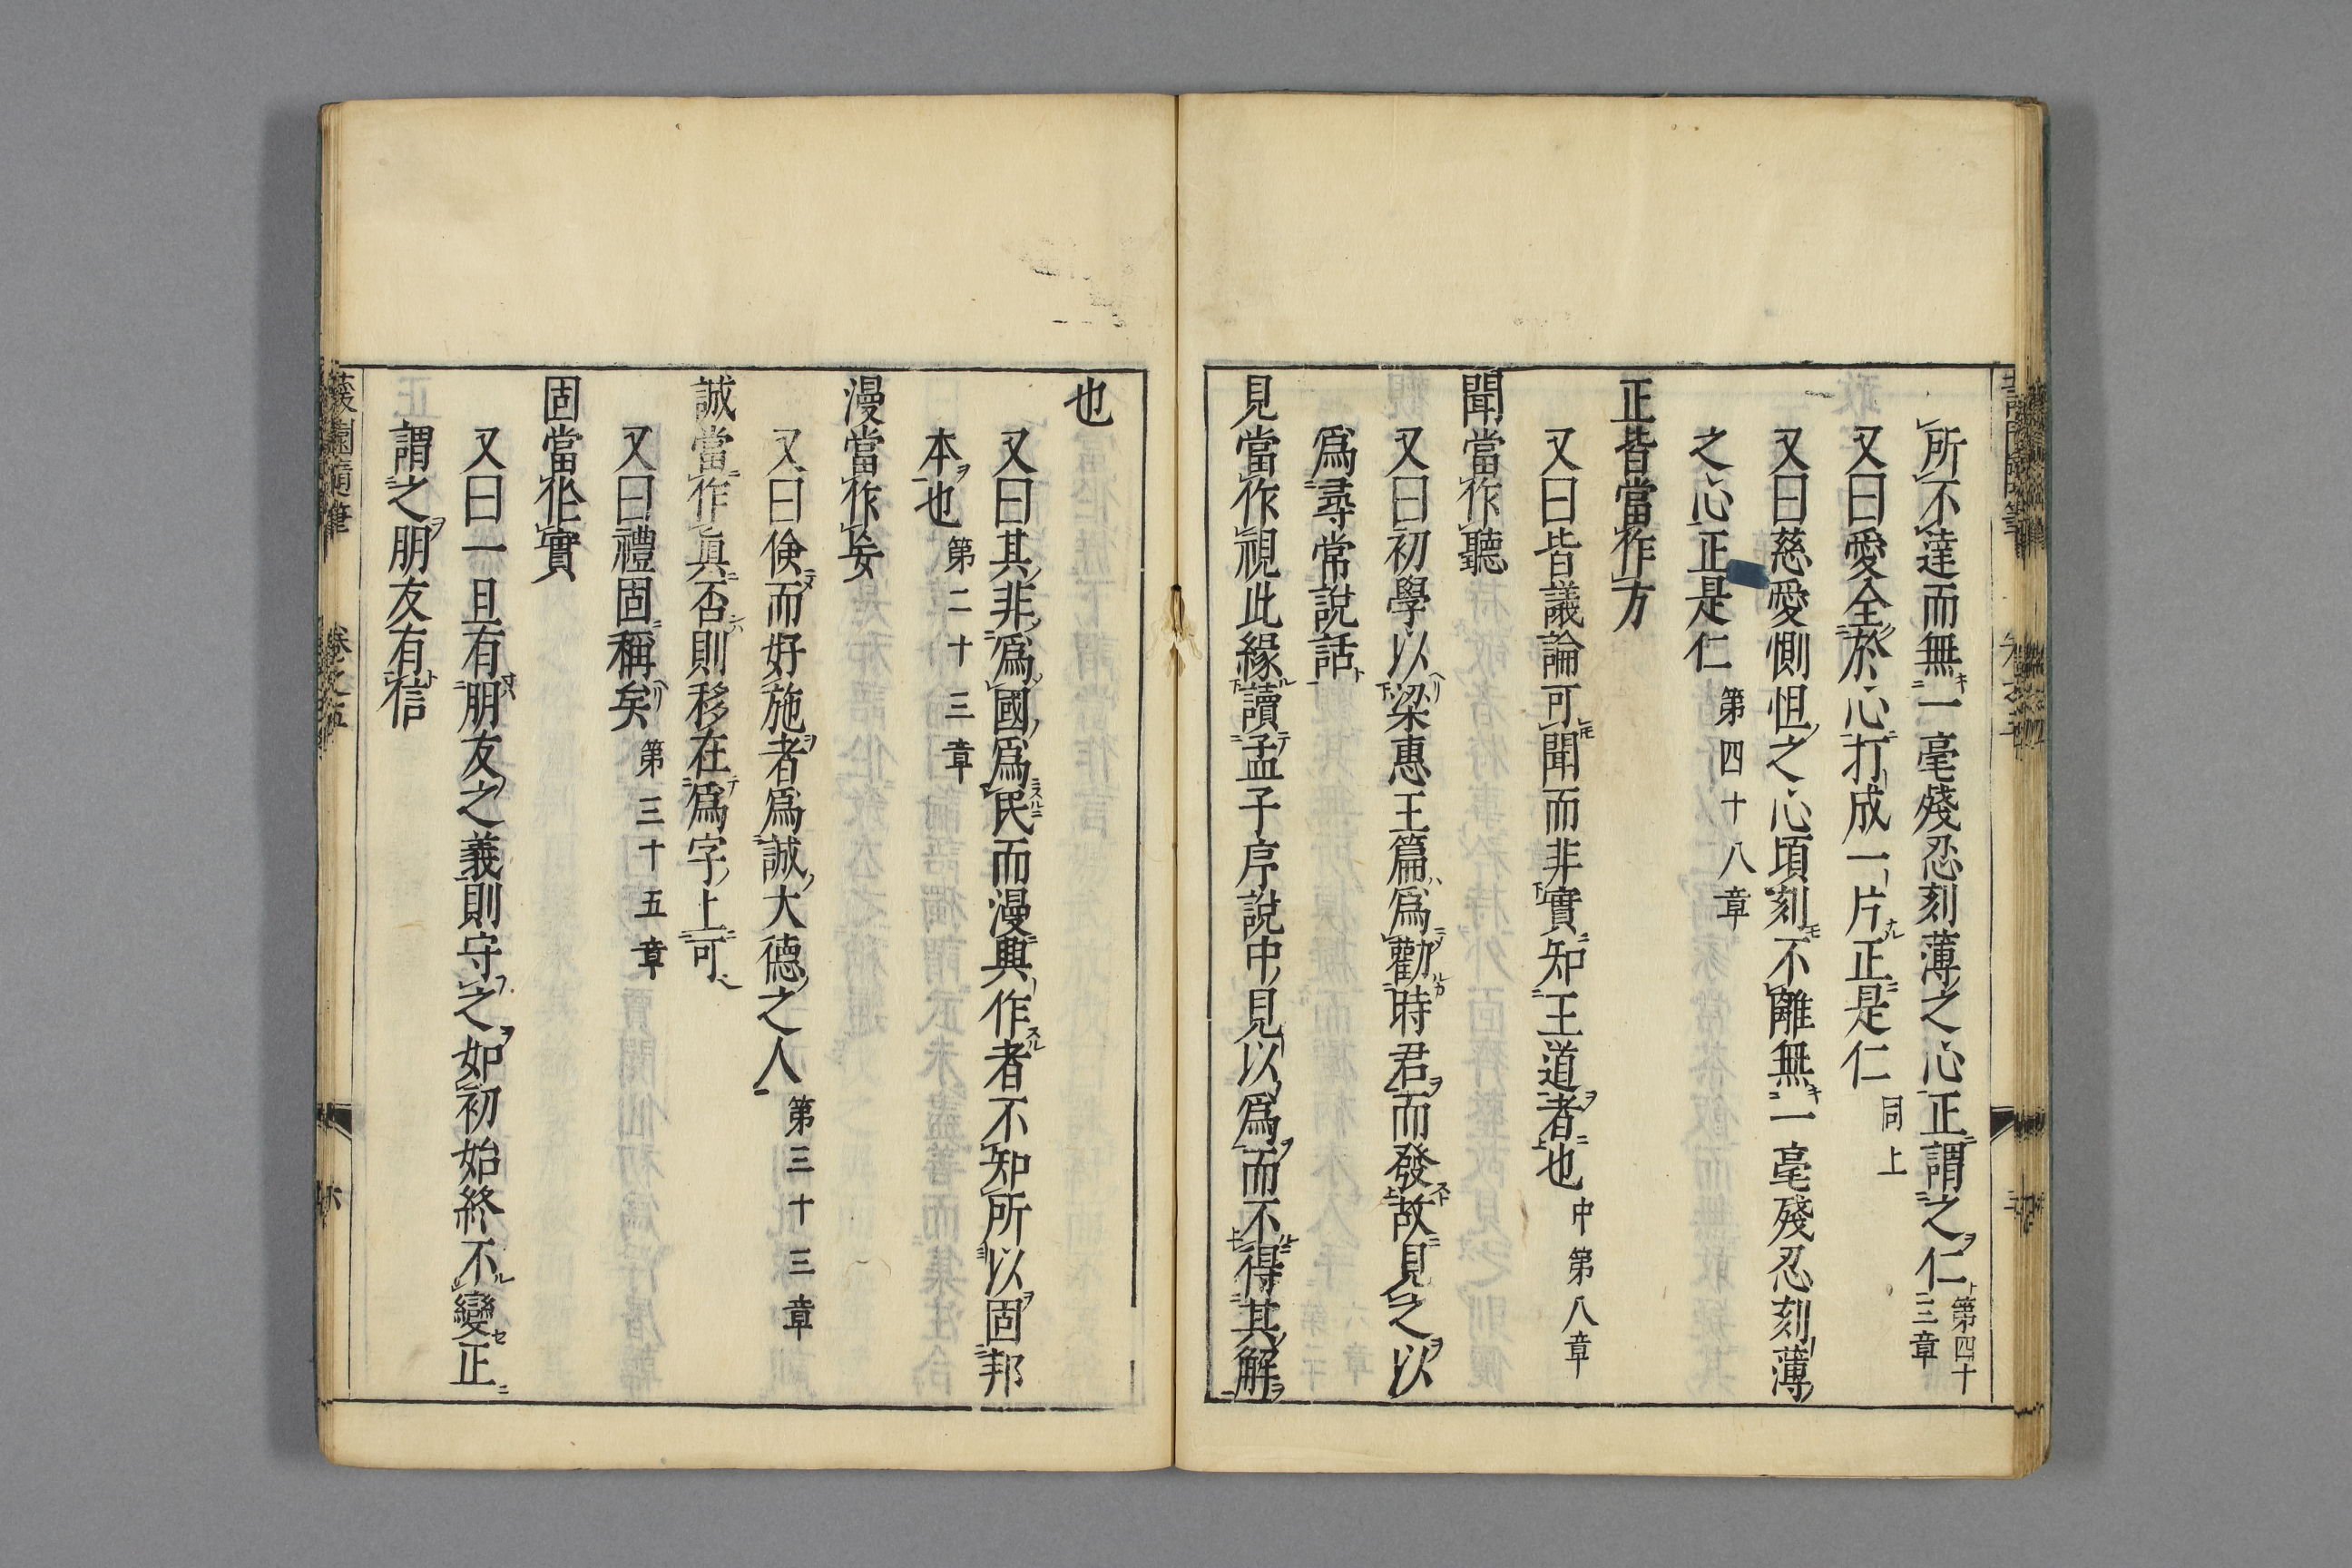 所不達而無一毫殘忍刻薄之心正謂之仁第四十三章
又曰愛全於心打成一片正是仁同上
又曰慈愛惻怛之心頃刻不離無一毫殘忍刻薄
之心正是仁第四十八章
正皆當作方
又曰皆議論可聞而非實知王道者也中第八章
聞當作聽
又曰初學以梁惠王篇爲勸時君而發故見之以
爲尋常說話
見當作視此緣讀孟子序說中見以爲而不得其解
也
又曰其非爲國爲民而漫興作者不知所以固邦
本也第二十三章
漫當作妄
又曰儉而好施者爲誠大德之人第三十三章
誠當作眞否則移在爲字上可
又曰禮固稱矣第三十五章
固當作實
又曰一旦有朋友之義則守之如初始終不變正
謂之朋友有信
蘐園隨筆 卷之五 六